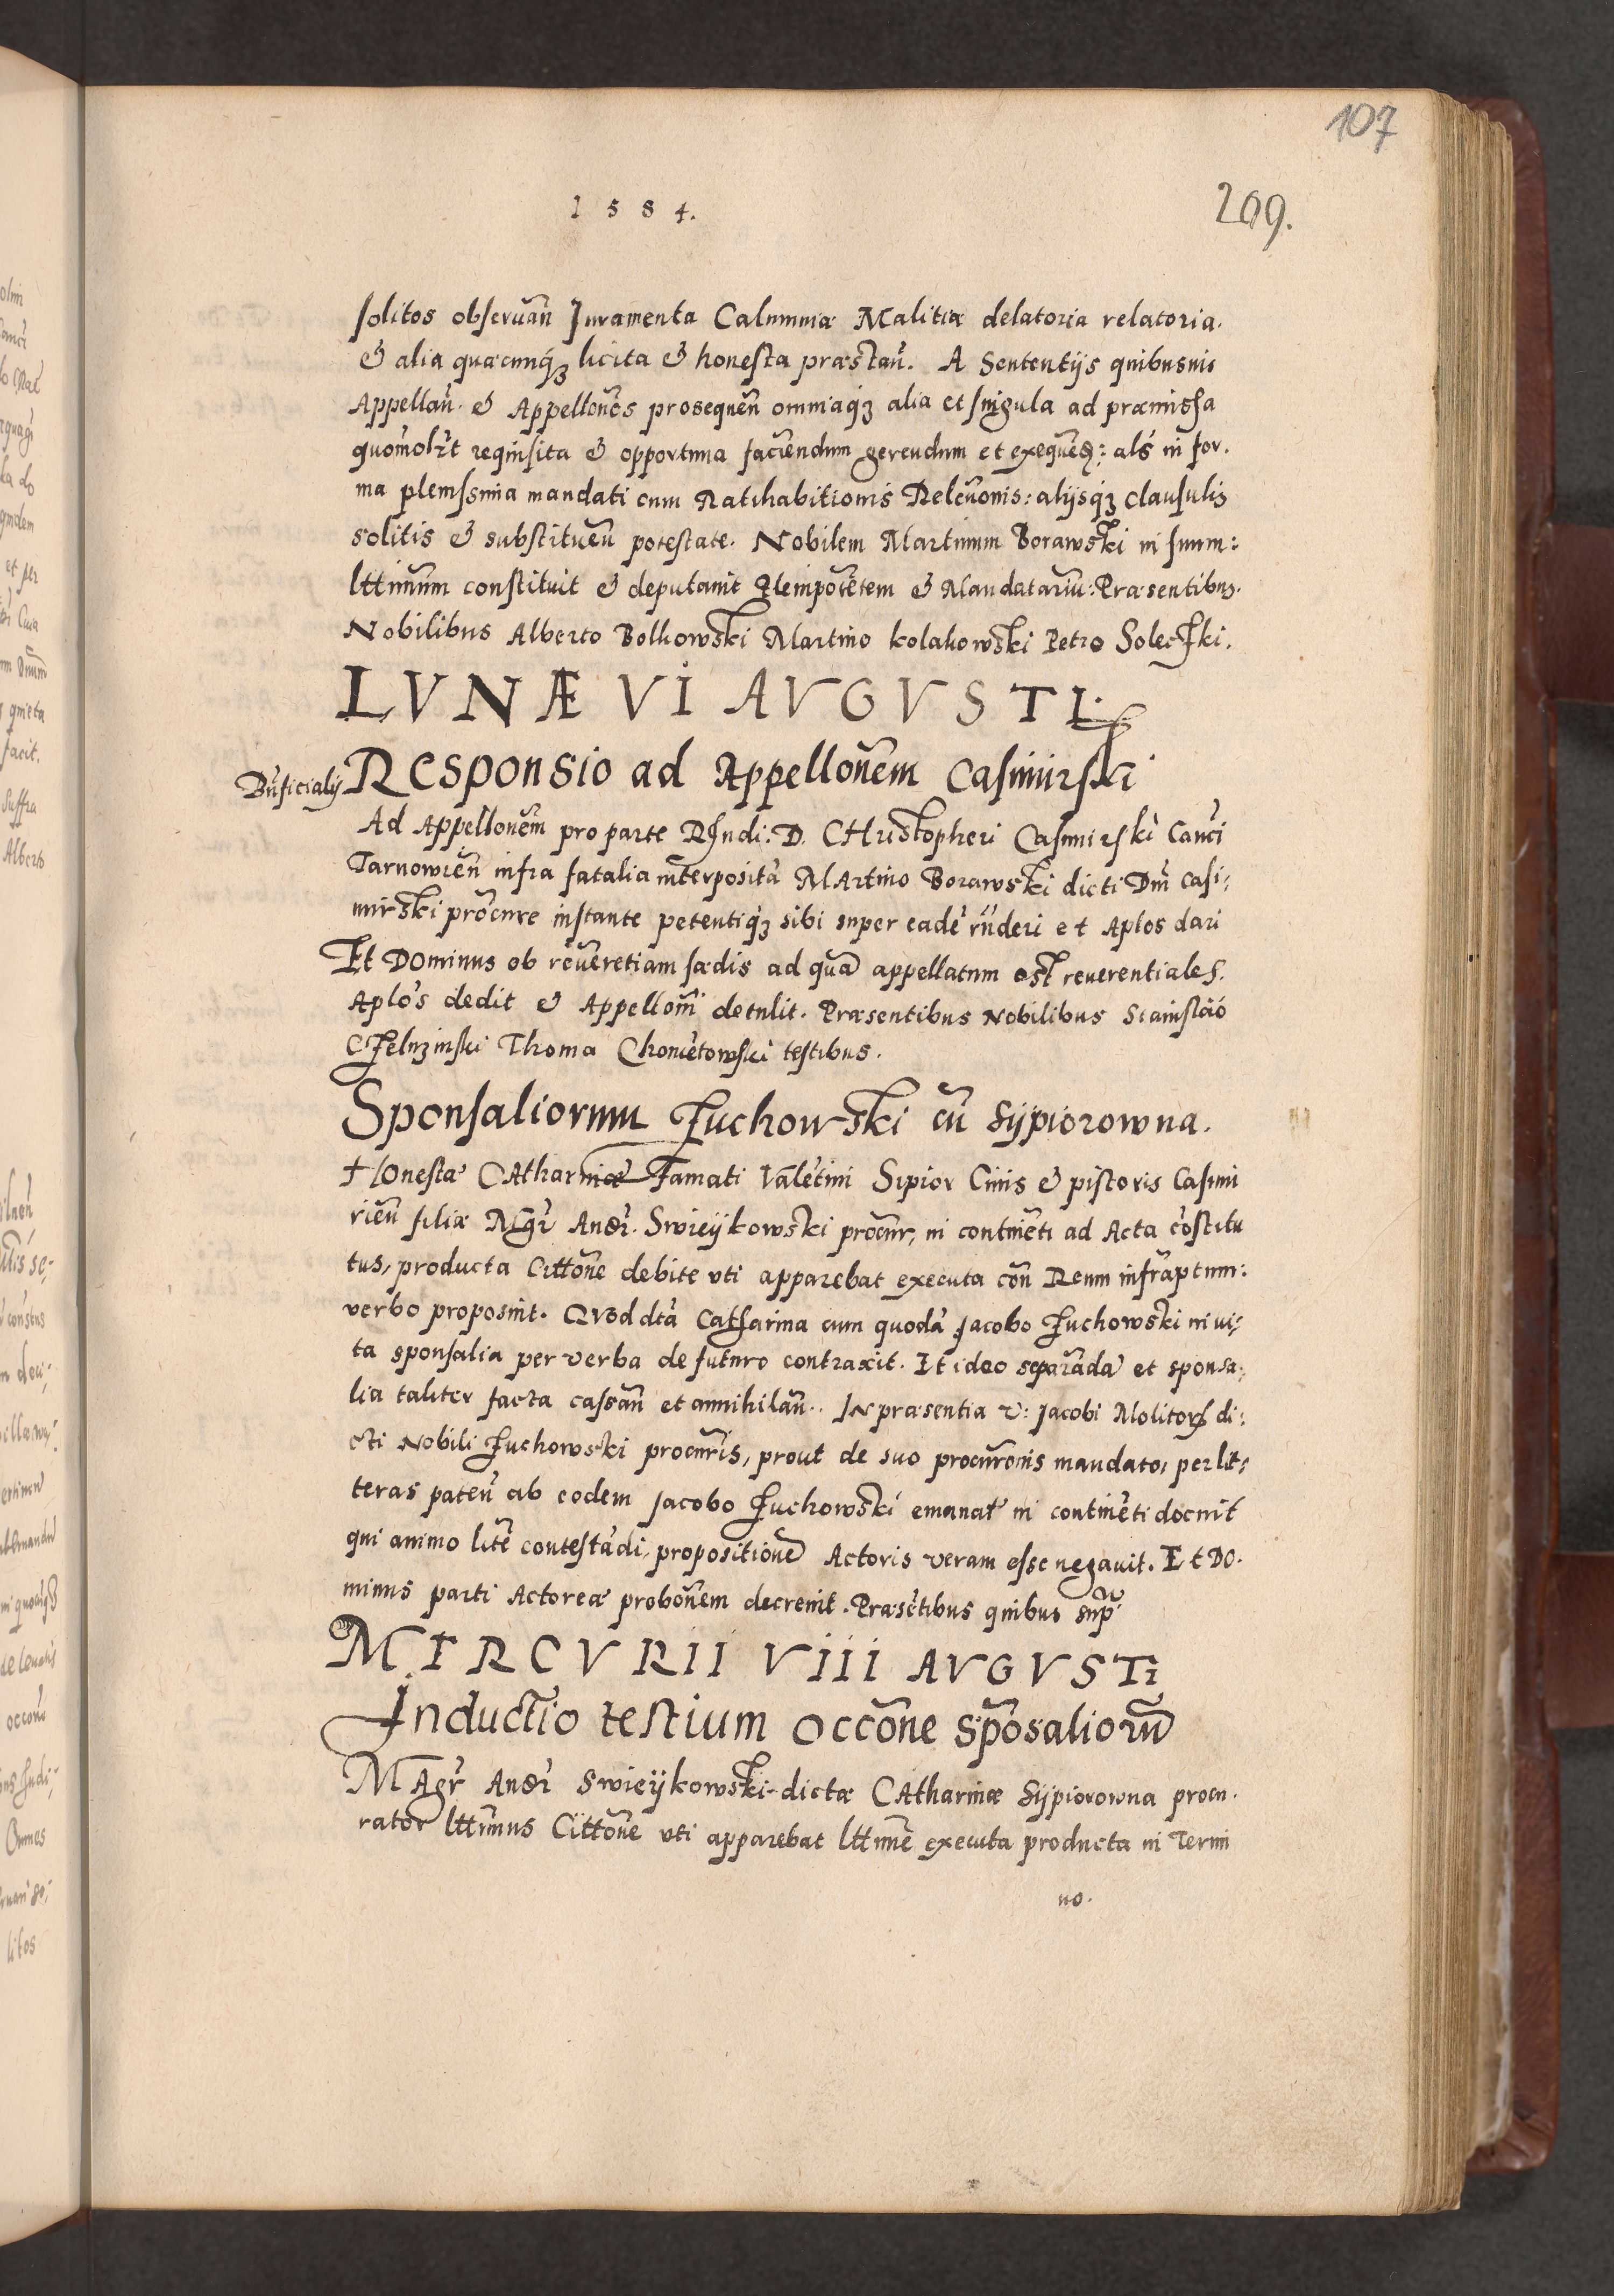 107
1584.
209.
solitos observan̄ Juramenta Calumniæ Malitiæ delatoria relatoria.
& alia quæcunq₃ licita & honesta præstan̄. A Sententijs quibusuis
Appellan̄. & Appellon̄es prosequen̄ omniaq₃ alia et singula ad præmissa
quomol₃t requisita & opportuna faciendum gerendum et exequen̄: als̄ in for.
ma plenissima mandati cum Ratihabitionis Releuonis: alijsq₃ clausulis
solitis & substituen̄ potestate. Nobilem Martinum Borawski in suum:
ltt̄imum constituit & deputauit Plenipotētem & Mandatariū: Præsentibus.
Nobilibus Alberto Bolkowski Martino kolakowski Petro Soleczki.
LVNÆ VI AVGVSTI.
Būficialij
Responsio ad Appellon̄em Casimirski
Ad Appellon̄em pro parte Rn̄di: D. CHristopheri Casimirski Canc̄i
Tarnowien̄ infra fatalia interposita᷈ MArtino Borawski dicti Dn̄i Casi:
mirski procure instante petentiq₃ sibi super eadē rn̄deri et Aplos dari
Et Dominus ob reueretiam sædis ad quā appellatum est reuerentiales.
Aplōs dedit & Appellon̄i detulit. Præsentibus Nobilibus Stanislāo
Czeluzinski Thoma Chomētowski testibus.
Sponsaliorum Zuchowski cū Sÿpiorowna.
Honestæ CAtharinæ Famati Valētini Sipior Ciuis & pistoris Casimi
rien̄ filiæ Mgr̄ Andr̄. Swieÿkowski procur, in continēti ad Acta cōstitu
tus, producta Citton̄e debite vti apparebat executa con̄ Reum infraptum:
verbo proposuit. Qvod dtā Catharina cum quodā Jacobo Zuchowski inui:
ta sponsalia per verba de futuro contraxit. Et ideo separādā et sponsa:
lia taliter facta cassan̄ et annihilan̄.. IN præsentia v: Jacobi Molitoris di:
cti Nobili Zuchowski procur̄is, prout de suo procuronis mandato, per lit:
teras paten̄ ab eodem Jacobo Zuchowski emanat̄ in continēti docuit
qui animo litē contestādi, propositionē Actoris veram esse negauit. Et Do.
minus parti Actoreæ probon̄em decreuit. Præsētibus quibus sup̄.
MERCVRII VIII AVGVSTI
Inductio testium occōne spōsaliorū
MAgr̄ Andr̄ Swieÿkowski dictæ CAtharinæ Sÿpiorowna procu.
rator ltt̄imus Citton̄e vti apparebat ltt̄ime executa producta in Termi
no.